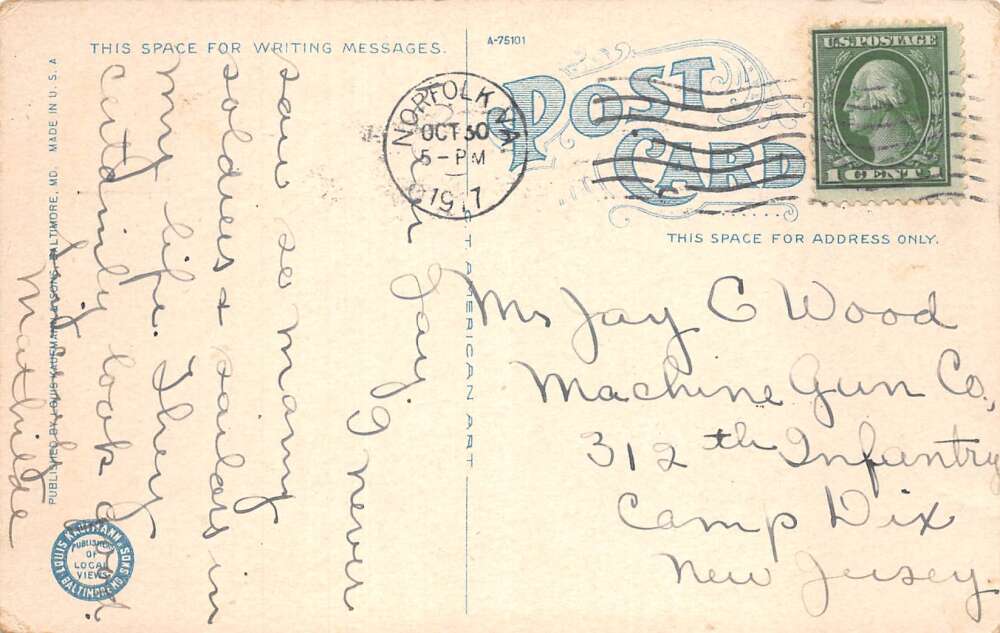 THIS SPACE FOR WRITING MESSAGES.
A-75101
POST CARD
U.S. POSTAGE
1 CENT 1
NORFOLK VA
OCT 30
5-PM
1917
THIS SPACE FOR ADDRESS ONLY.
Mr Jay C Wood
Machine Gun Co,
312th Infantry
Camp Dix
New Jersey
Dear Jay. I never
saw so many
soldiers & sailors in
my life. They
certainly look good.
Mathilde
PUBLISHED BY LOUIS KAUFMANN & SONS, BALTIMORE, MD. MADE IN U.S.A
AMERICAN ART
LOUIS KAUFMANN & SONS
BALTIMORE MD.
PUBLISHERS
OF
LOCAL
VIEWS